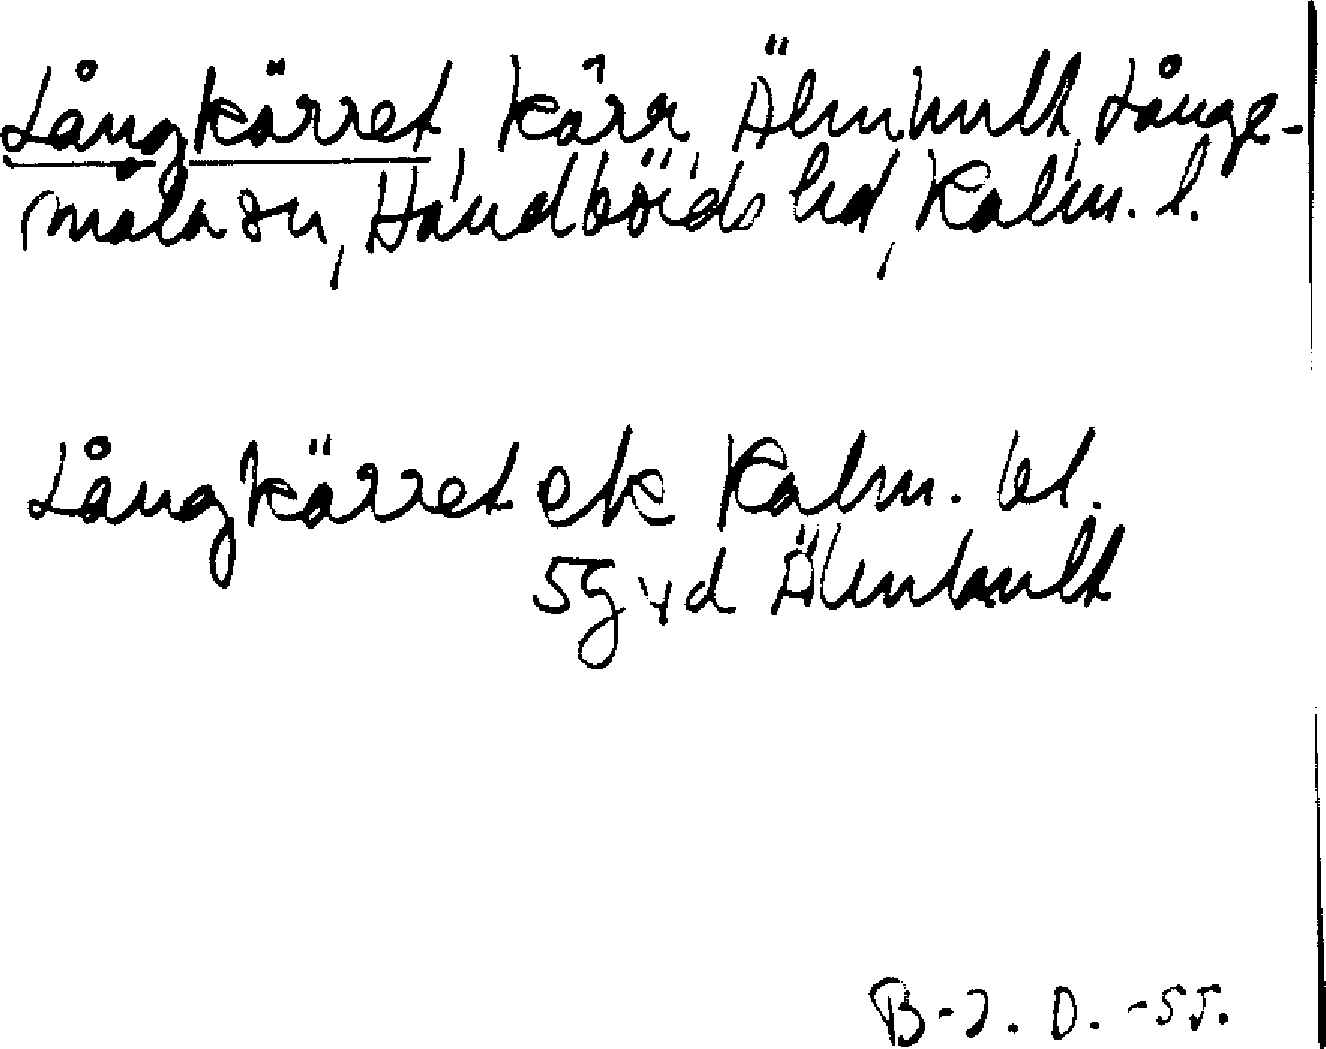 Långkärret, kärr, Älmhult, Långe-
måla sn, Handbörds hd, Kalm. l.
Långkärret ek Kalm. bl.
5g vd Älmhult
B-J. O. -55.